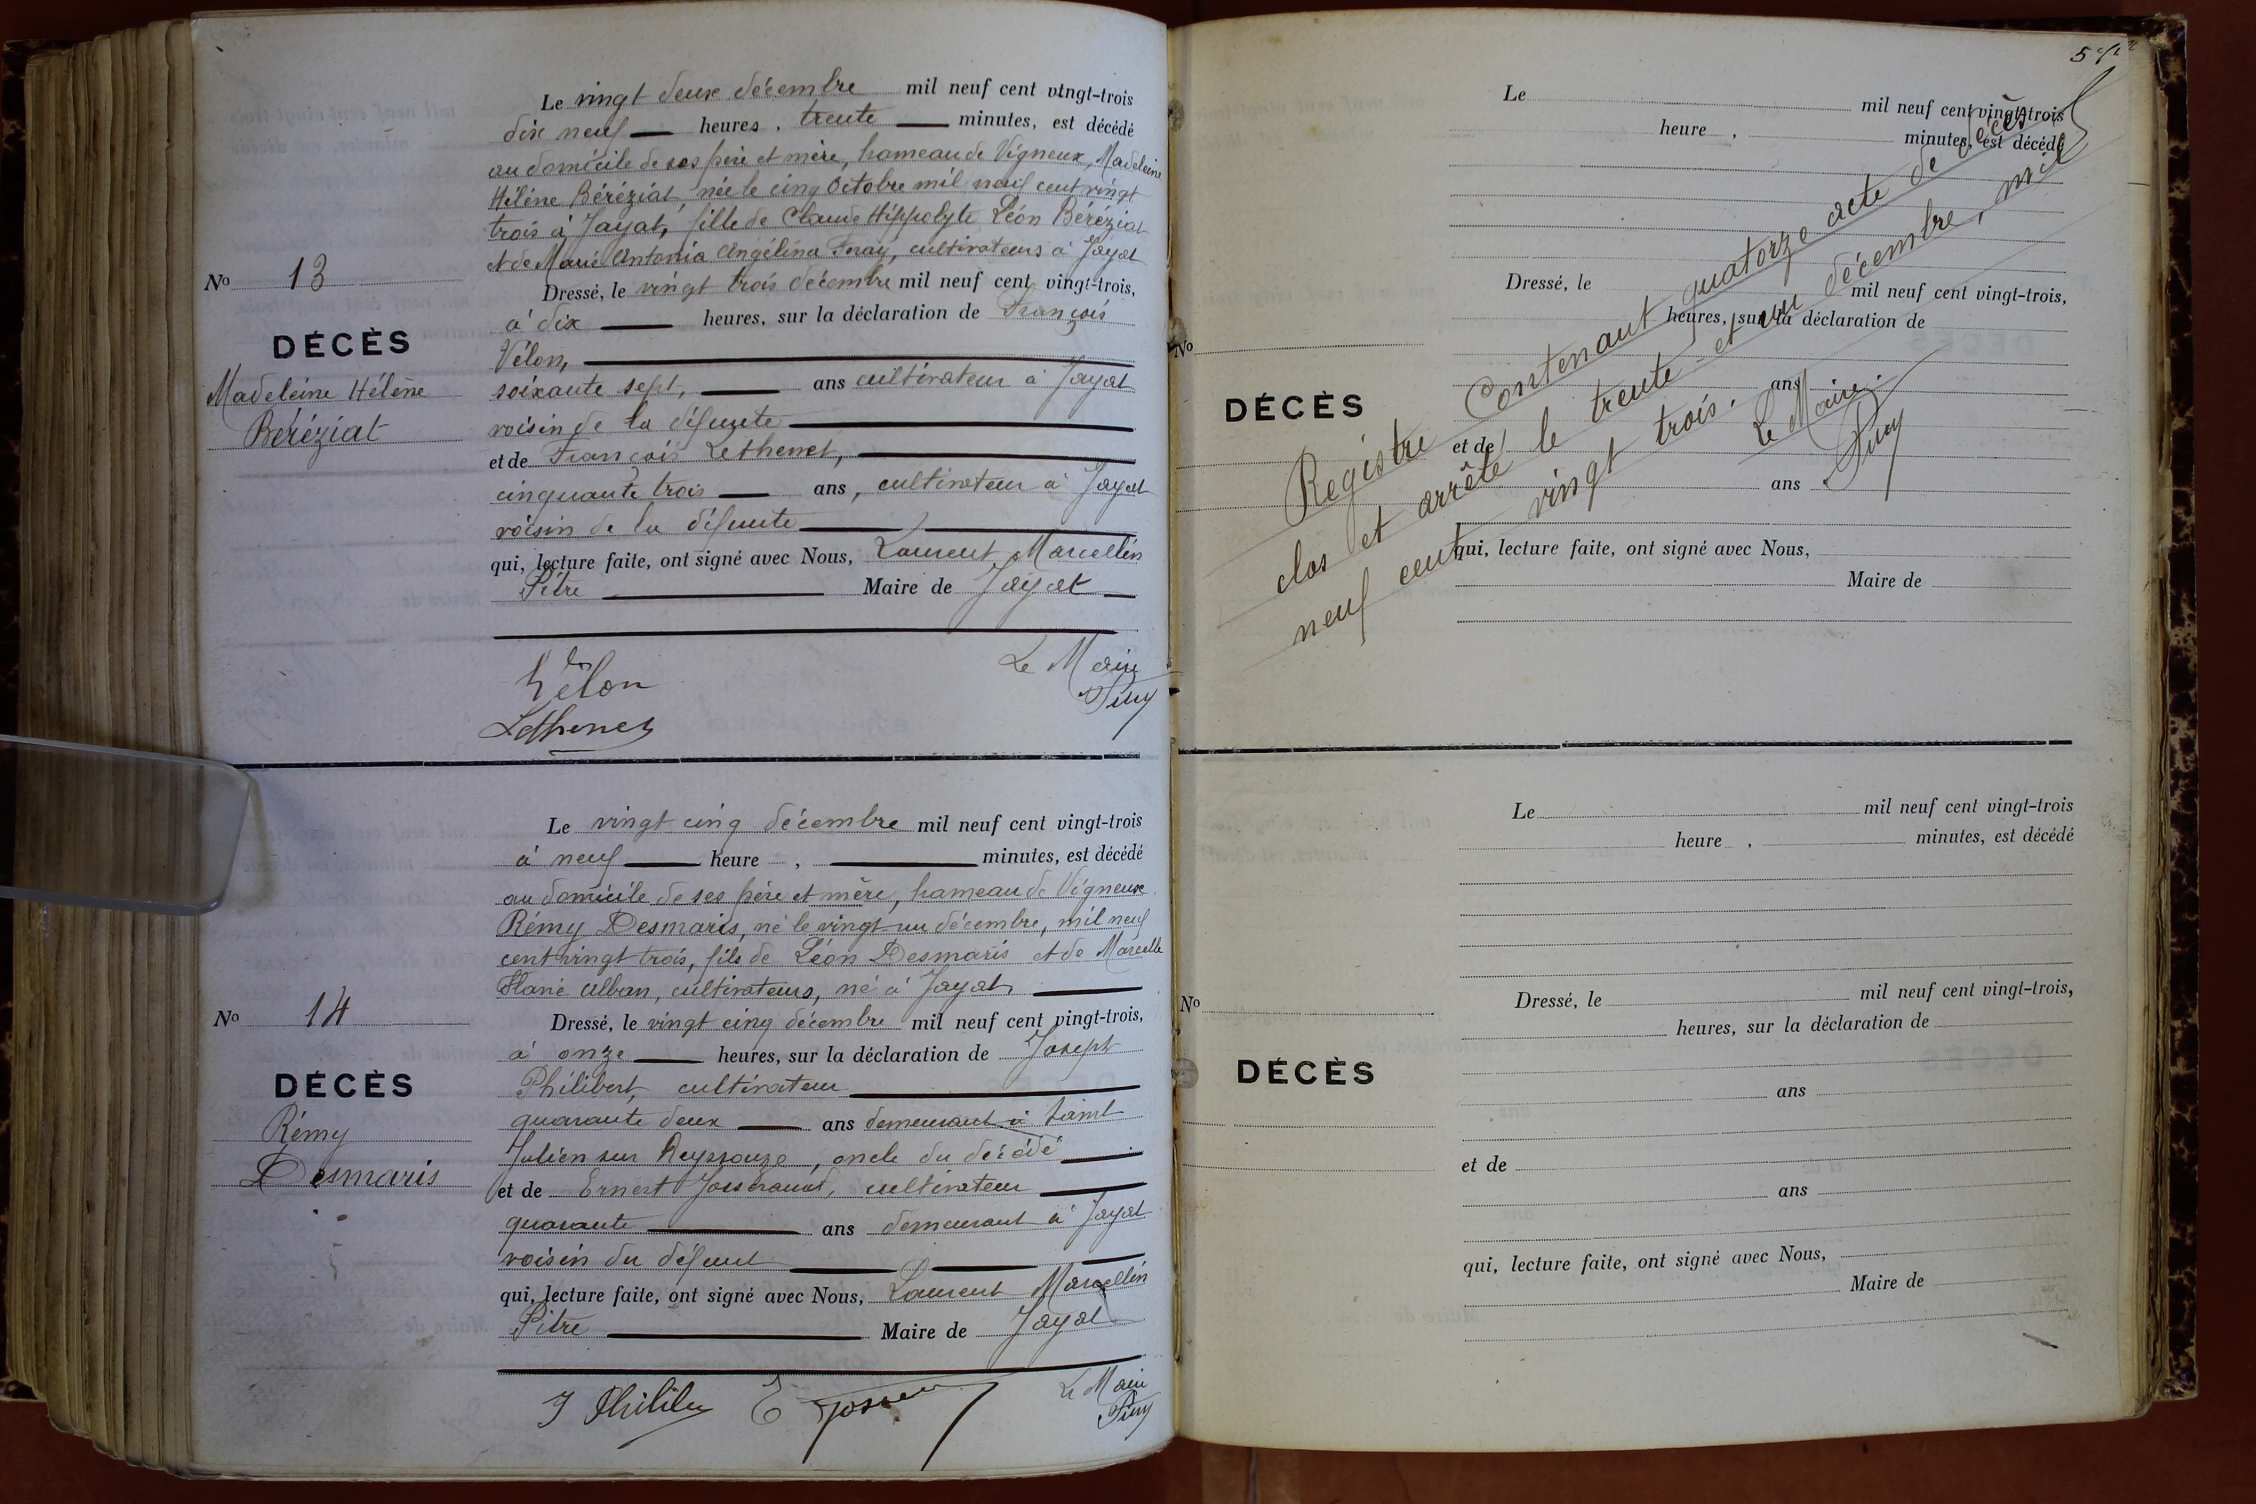 Le vingt deux décembre mil neuf cent vingt-trois
dix neuf heures, trente minutes, est décédé
au domicile de ses père et mère, hameau de Vigneux, Madeleine
Hélène Béréziat, née le cinq Octobre mil neuf cent vingt
trois à Jayat, fille de Claude Hippolyte Léon Béréziat
et de Marie Antonia Angélina Feray, cultivateurs à Jayat
No 13
DÉCÈS
Madeleine Hélène
Béréziat
Dressé, le vingt trois décembre mil neuf cent vingt-trois,
à dix heures, sur la déclaration de François
Vélon,
soixante sept, ans cultivateur à Jayat
voisin de la défunte
et de François Lethenet,
cinquante trois ans, cultivateur à Jayat
voisin de la défunte
qui, lecture faite, ont signé avec Nous, Laurent Marcellin
Pitre Maire de Jayat
Vélon
Le Maire
Lethenet
Le vingt cinq décembre mil neuf cent vingt-trois
à neuf heure, minutes, est décédé
au domicile de ses père et mère, hameau de Vigneux
Rémy Desmaris, né le vingt un décembre, mil neuf
cent vingt trois, fils de Léon Desmaris et de Marcelle
Marie Alban, cultivateurs, né à Jayat
No 14
DÉCÈS
Rémy
Desmaris
Dressé, le vingt cinq décembre mil neuf cent vingt-trois,
à onze heures, sur la déclaration de Joseph
Philibert, cultivateur
quarante deux ans demeurant à Saint
Julien sur Reyssouze, oncle du décédé
et de Ernest Josserand, cultivateur
quarante ans demeurant à Jayat
voisin du défunt
qui, lecture faite, ont signé avec Nous, Laurent Marcellin
Pitre Maire de Jayat
Le Maire
Le mil neuf cent vingt-trois
heure, minutes, est décédé
Dressé, le mil neuf cent vingt-trois,
heures, sur la déclaration de
No
DÉCÈS
ans
et de
ans
qui, lecture faite, ont signé avec Nous,
Maire de
Registre Contenant quatorze acte de décès
clos et arrêté le trente et un décembre, mil
neuf cent vingt trois.
Le Maire.
Le mil neuf cent vingt-trois
heure, minutes, est décédé
Dressé, le mil neuf cent vingt-trois,
heures, sur la déclaration de
No
DÉCÈS
ans
et de
ans
qui, lecture faite, ont signé avec Nous,
Maire de